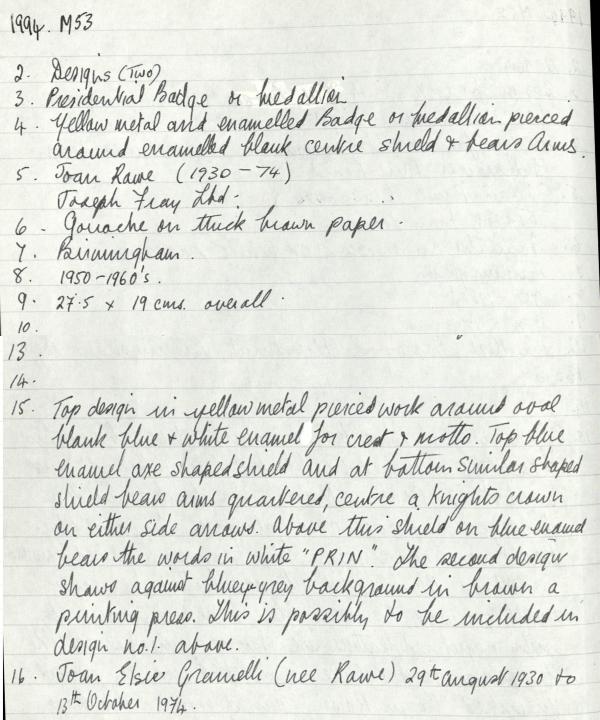 1994. M53
2. Designs (Two)
3. Presidential Badge or Medallion
4. Yellow metal and enamelled Badge or Medallion pierced
around enamelled blank centre shield & bears Arms.
5. Joan Rawe (1930-74)
Joseph Fray Ltd:
6. Gouache on thick brown paper.
7. Birmingham.
8. 1950-1960's.
9. 27.5 x 19 cms. overall.
10.
13.
14.
15. Top design in yellow metal pierced work around oval
blank blue & white enamel for crest & motto. Top blue
enamel axe shaped shield and at bottom similar shaped
shield bears arms quartered, centre a Knights crown
on either side arrows. Above this shield on blue enamel
bears the words in white "PRIN". The second design
shows against bluey-grey background in brown a
printing press. This is possibly to be included in
design no.1. above.
16. Joan Elsie Gramelli (nee Rawe) 29th August 1930 to
13th October 1974.